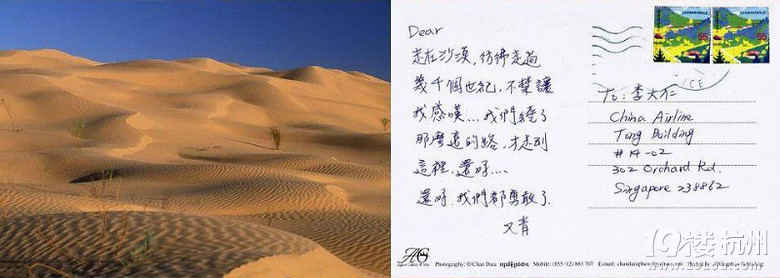 Dear
走在沙漠,彷彿走過
幾千個世紀,不禁讓
我感嘆...我們繞了
那麼遠的路,才走到
這裡,還好....
還好,我們都勇敢了.
又青
To: 李大仁
China Airline
Tong Building
#14-02
302 Orchard Rd.
Singapore 238862
Photography: ©Chan Dara
Mobile: (855-12) 883 707
E-mail:
19楼杭州